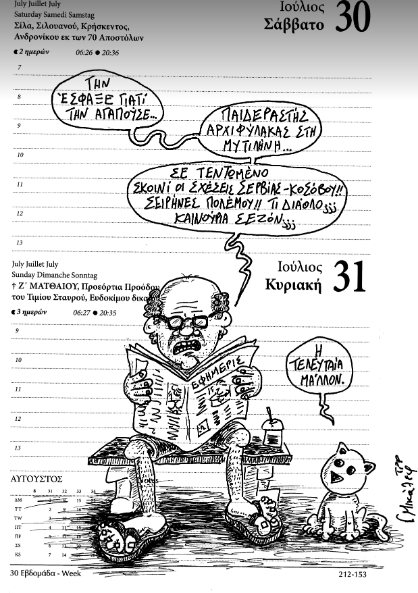 July Juillet July
Saturday Samedi Samstag
Σίλα, Σιλουανού, Κρήσκεντος,
Ανδρονίκου εκ των 70 Αποστόλων
2 ημερών
06:26 20:36
Ιούλιος
Σάββατο
30
7
8
9
10
11
12
13
ΤΗΝ
ΈΣΦΑΞΕ ΓΙΑΤΙ
ΤΗΝ ΑΓΑΠΟΥΣΕ...
ΠΑΙΔΕΡΑΣΤΗΣ
ΑΡΧΙΦΥΛΑΚΑΣ ΣΤΗ
ΜΥΤΙΛΗΝΗ...
ΣΕ ΤΕΝΤΩΜΕΝΟ
ΣΚΟΙΝΙ ΟΙ ΣΧΕΣΕΙΣ ΣΕΡΒΙΑΣ-ΚΟΣΟΒΟΥ!!
ΣΕΙΡΗΝΕΣ ΠΟΛΕΜΟΥ!! ΤΙ ΔΙΑΟΛΟ;;;
ΚΑΙΝΟΥΡΙΑ ΣΕΖΟΝ;;;
July Juillet July
Sunday Dimanche Sonntag
† Ζ΄ ΜΑΤΘΑΙΟΥ, Προεόρτια Προόδου
του Τιμίου Σταυρού, Ευδοκίμου
3 ημερών
06:27 20:35
Ιούλιος
Κυριακή
31
9
10
11
12
13
ΕΦΗΜΕΡΙΣ
Η
ΤΕΛΕΥΤΑΙΑ
ΜΑΛΛΟΝ.
ΑΥΓΟΥΣΤΟΣ
30 Εβδομάδα - Week
212-153